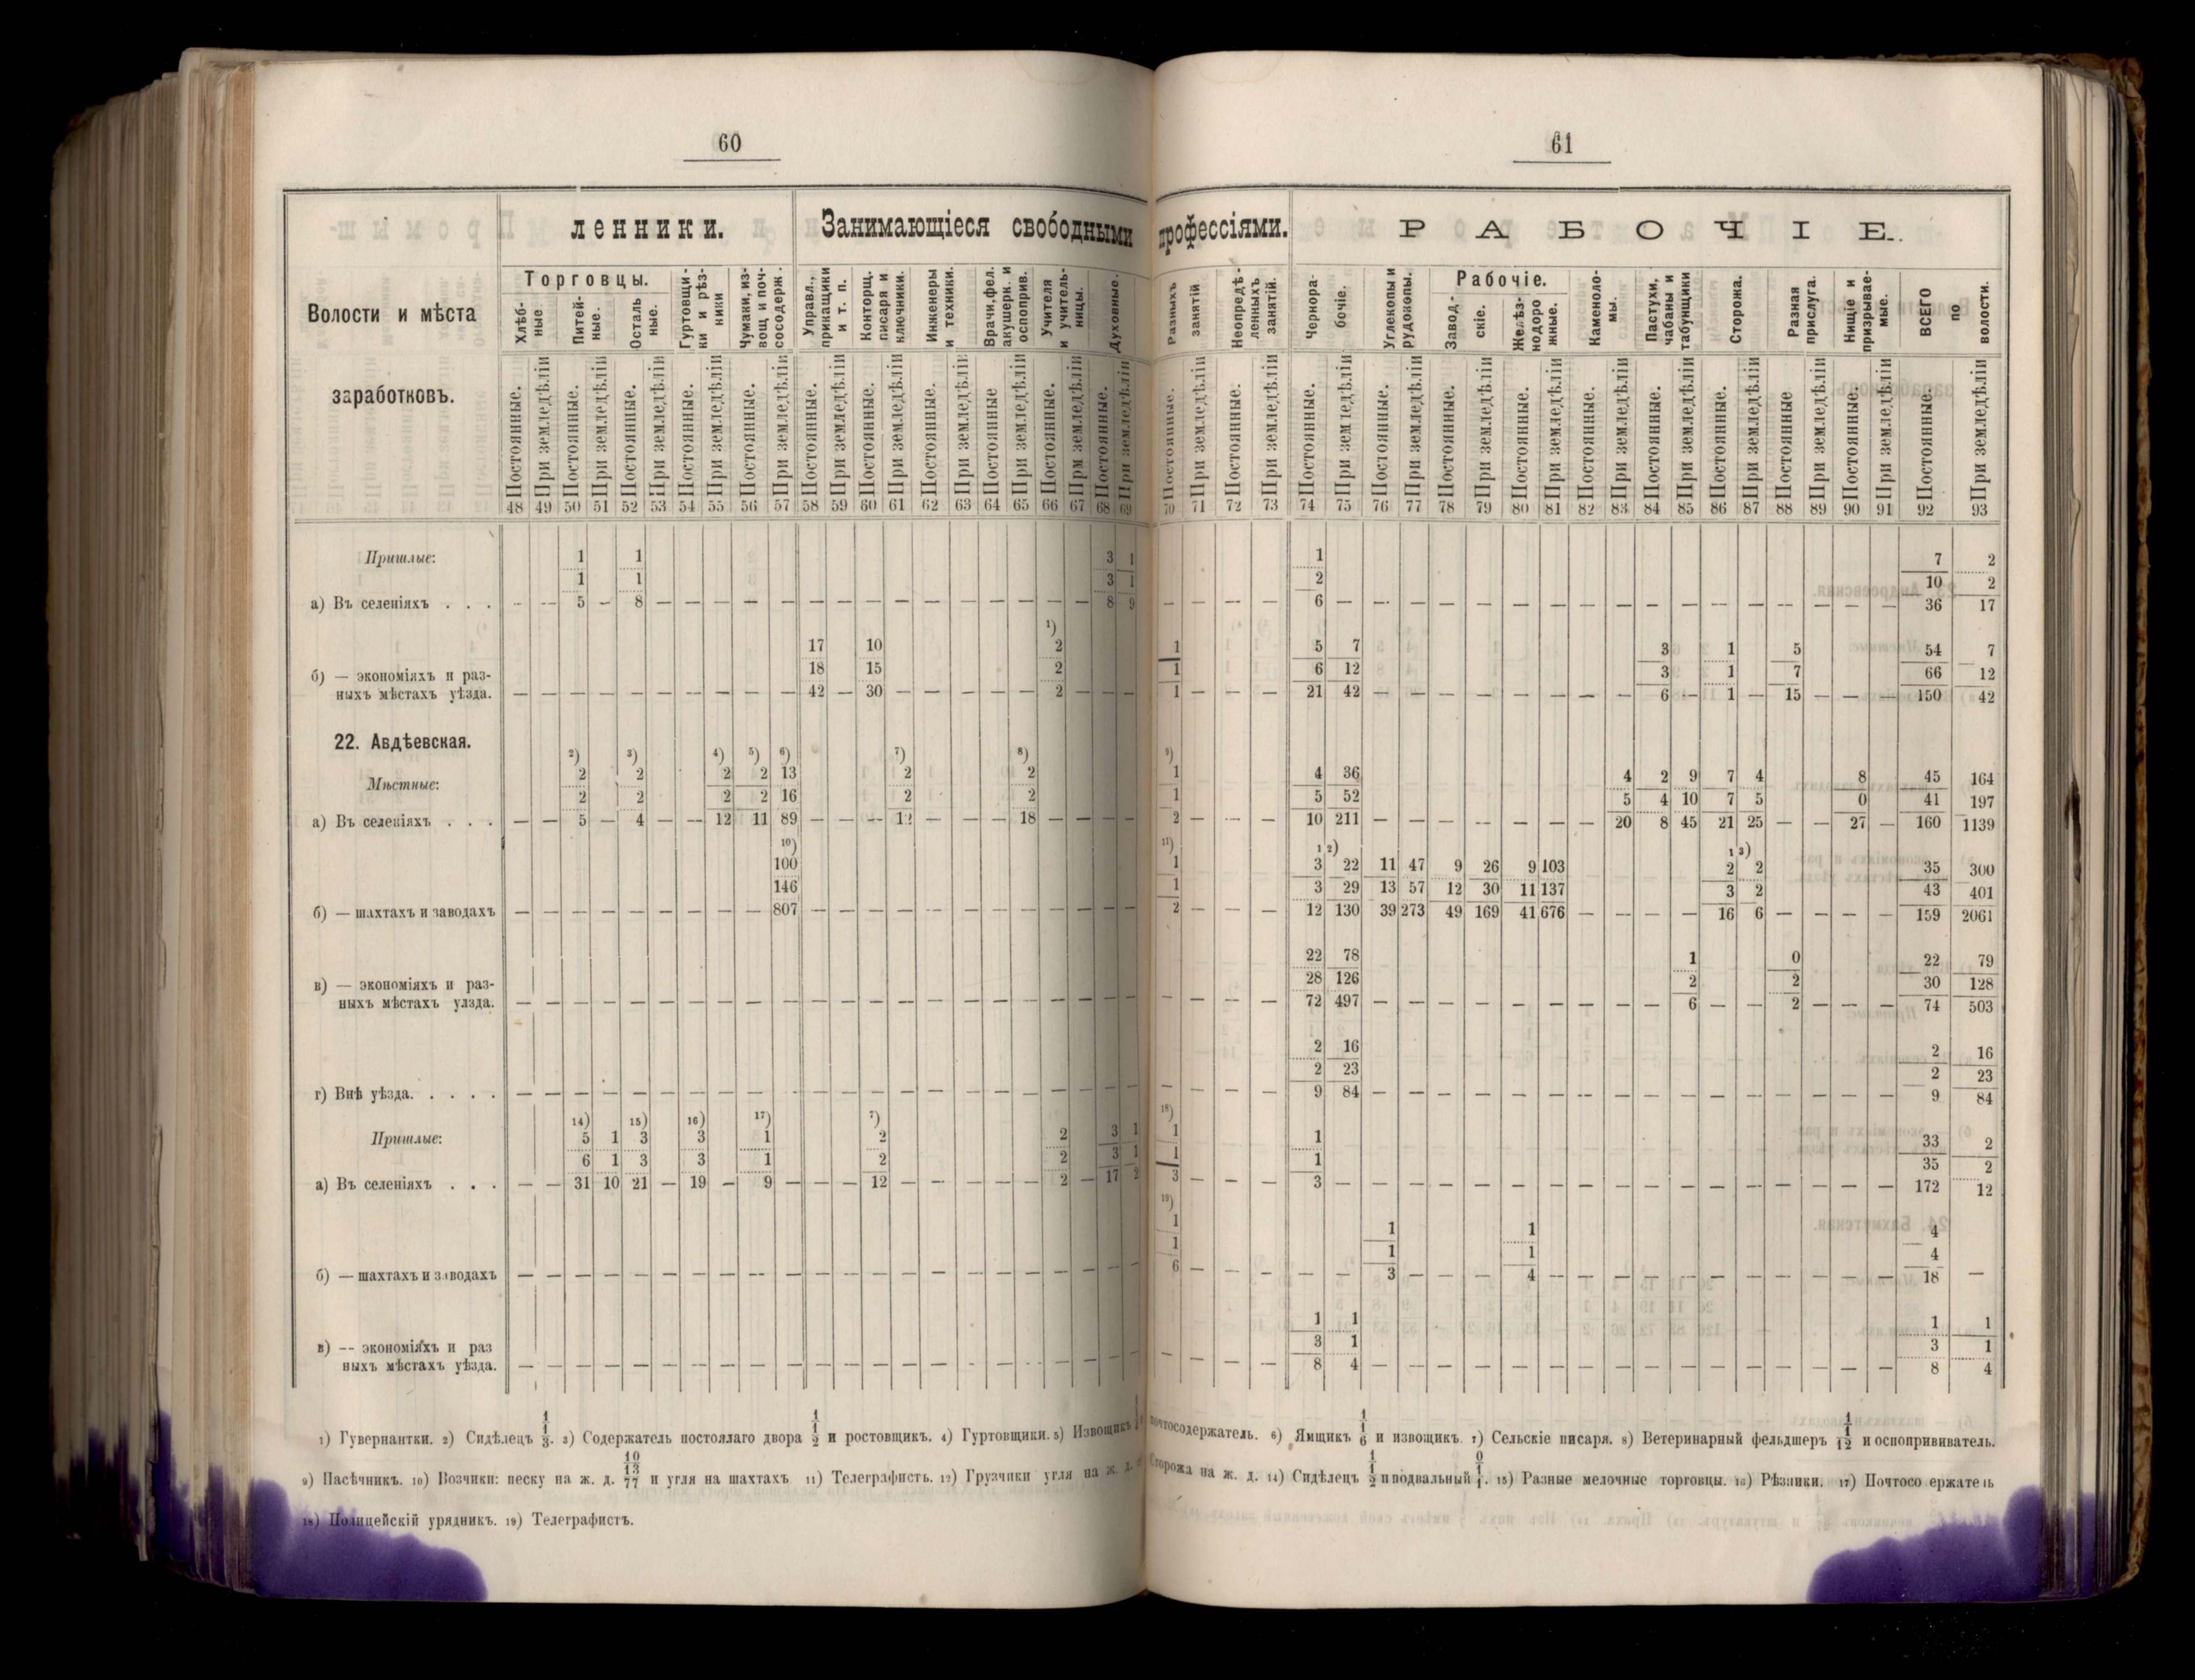 60
61
Волости и мѣста
заработковъ.
ленники.
Занимающіеся свободными профессіями.
РАБОЧІЕ.
Торговцы.
Хлѣб-
ные.
Питей-
ные.
Осталь
ные.
Гуртовщи-
ки и рѣз-
ники
Чумаки, из-
вощ и поч-
сосодерж.
Управл.,
прикащики
и т. п.
Конторщ.
писаря и
ключники.
Инженеры
и техники.
Врачи, фел.
акушерк. и
оспоприв.
Учителя
и учитель-
ницы.
Духовные.
Разныхъ
занятій
Неопредѣ-
ленныхъ
занятій.
Чернора-
бочіе.
Углекопы и
рудокопы.
Рабочіе.
Завод-
скіе.
Желѣз-
нодоро
жные.
Каменоло-
мы.
Пастухи,
чабаны и
табунщики
Сторожа.
Разная
прислуга.
Нищіе и
призрывае-
мые.
ВСЕГО
по
волости.
Постоянные. При земледѣліи Постоянные. При земледѣліи Постоянные. При земледѣліи Постоянные. При земледѣліи Постоянные. При земледѣліи Постоянные. При земледѣліи Постоянные. При земледѣліи Постоянные. При земледѣліи Постоянные При земледѣліи Постоянные. При земледѣліи Постоянные. При земледѣліи Постоянные. При земледѣліи Постоянные. При земледѣліи Постоянные. При земледѣліи Постоянные. При земледѣліи Постоянные. При земледѣліи Постоянные. При земледѣліи Постоянные. При земледѣліи Постоянные. При земледѣліи Постоянные. При земледѣліи Постоянные При земледѣліи Постоянные. При земледѣліи Постоянные. При земледѣліи
48 49 50 51 52 53 54 55 56 57 58 59 60 61 62 63 64 65 66 67 68 69 70 71 72 73 74 75 76 77 78 79 80 81 82 83 84 85 86 87 88 89 90 91 92 93
Пришлые: 1 1 3 1 1 7 2
1 1 3 1 2 10 2
а) Въ селеніяхъ . . . — — 5 — 8 — — — — — — — — — — — — — — — 8 9 — — — — 6 — — — — — — — — — — — — — — — — — 36 17
1)
17 10 2 1 5 7 3 1 5 54 7
18 15 2 1 6 12 3 1 7 66 12
б) — экономіяхъ и раз-
ныхъ мѣстахъ уѣзда. — — — — — — — — — — 42 — 30 — — — — — 2 — — — 1 — — — 21 42 — — — — — — — — 6 — 1 — 15 — — — 150 42
22. Авдѣевская.
2) 3) 4) 5) 6) 7) 8) 9)
Мѣстные: 2 2 2 2 13 2 2 1 4 36 4 2 9 7 4 8 45 164
2 2 2 2 16 2 2 1 5 52 5 4 10 7 5 0 41 197
а) Въ селеніяхъ . . . — — 5 — 4 — — 12 11 89 — — — 12 — — — 18 — — — — 2 — — — 10 211 — — — — — — — 20 8 45 21 25 — — 27 — 160 1139
10) 11) 12) 13)
100 1 3 22 11 47 9 26 9 103 2 2 35 300
146 1 3 29 13 57 12 30 11 137 3 2 43 401
б) — шахтахъ и заводахъ — — — — — — — — — 807 — — — — — — — — — — — — 2 — — — 12 130 39 273 49 169 41 676 — — — — 16 6 — — — — 159 2061
22 78 1 0 22 79
28 126 2 2 30 128
в) — экономіяхъ и раз-
ныхъ мѣстахъ улзда. — — — — — — — — — — — — — — — — — — — — — — — — — — 72 497 — — — — — — — — — 6 — — 2 — — — 74 503
2 16 2 16
2 23 2 23
г) Внѣ уѣзда. . . . . — — — — — — — — — — — — — — — — — — — — — — — — — — 9 84 — — — — — — — — — — — — — — — — 9 84
14) 15) 16) 17) 7) 18)
Пришлые: 5 1 3 3 1 2 2 3 1 1 1 33 2
6 1 3 3 1 2 2 3 1 1 1 35 2
а) Въ селеніяхъ . . . — — 31 10 21 — 19 — 9 — — — 12 — — — — — 2 — 17 2 3 — — — 3 — — — — — — — — — — — — — — — — — 172 12
19)
1 1 1 4
1 1 1 4
б) — шахтахъ и заводахъ — — — — — — — — — — — — — — — — — — — — — — 6 — — — — — 3 — — — 4 — — — — — — — — — — — 18 —
1 1 1 1
3 1 3 1
в) -- экономіяхъ и раз
ныхъ мѣстахъ уѣзда. — — — — — — — — — — — — — — — — — — — — — — — — — — 8 4 — — — — — — — — — — — — — — — — 8 4
1) Гувернантки. 2) Сидѣлецъ 1/1/3. 3) Содержатель постоялаго двора 1/1/2 и ростовщикъ. 4) Гуртовщики. 5) Извощикъ почтосодержатель. 6) Ямщикъ 1/1/6 и извощикъ. 7) Сельскіе писаря. 8) Ветеринарный фельдшеръ 1/1/12 и оспопрививатель.
9) Пасѣчникъ. 10) Возчики: песку на ж. д. 10/13/77 и угля на шахтахъ 11) Телеграфистъ. 12) Грузчики угля на ж. д. Сторожа на ж. д. 14) Сидѣлецъ 1/1/2 и подвальный 0/1/1. 15) Разные мелочные торговцы. 16) Рѣзники. 17) Почтосо ержатель
18) Полицейскій урядникъ. 19) Телеграфистъ.